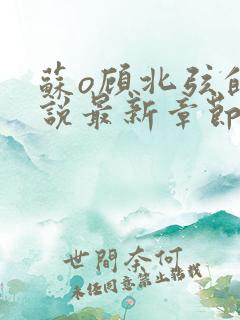 蘇o顾北弦的
說最新章節
世間奈何
未经同意禁止转载